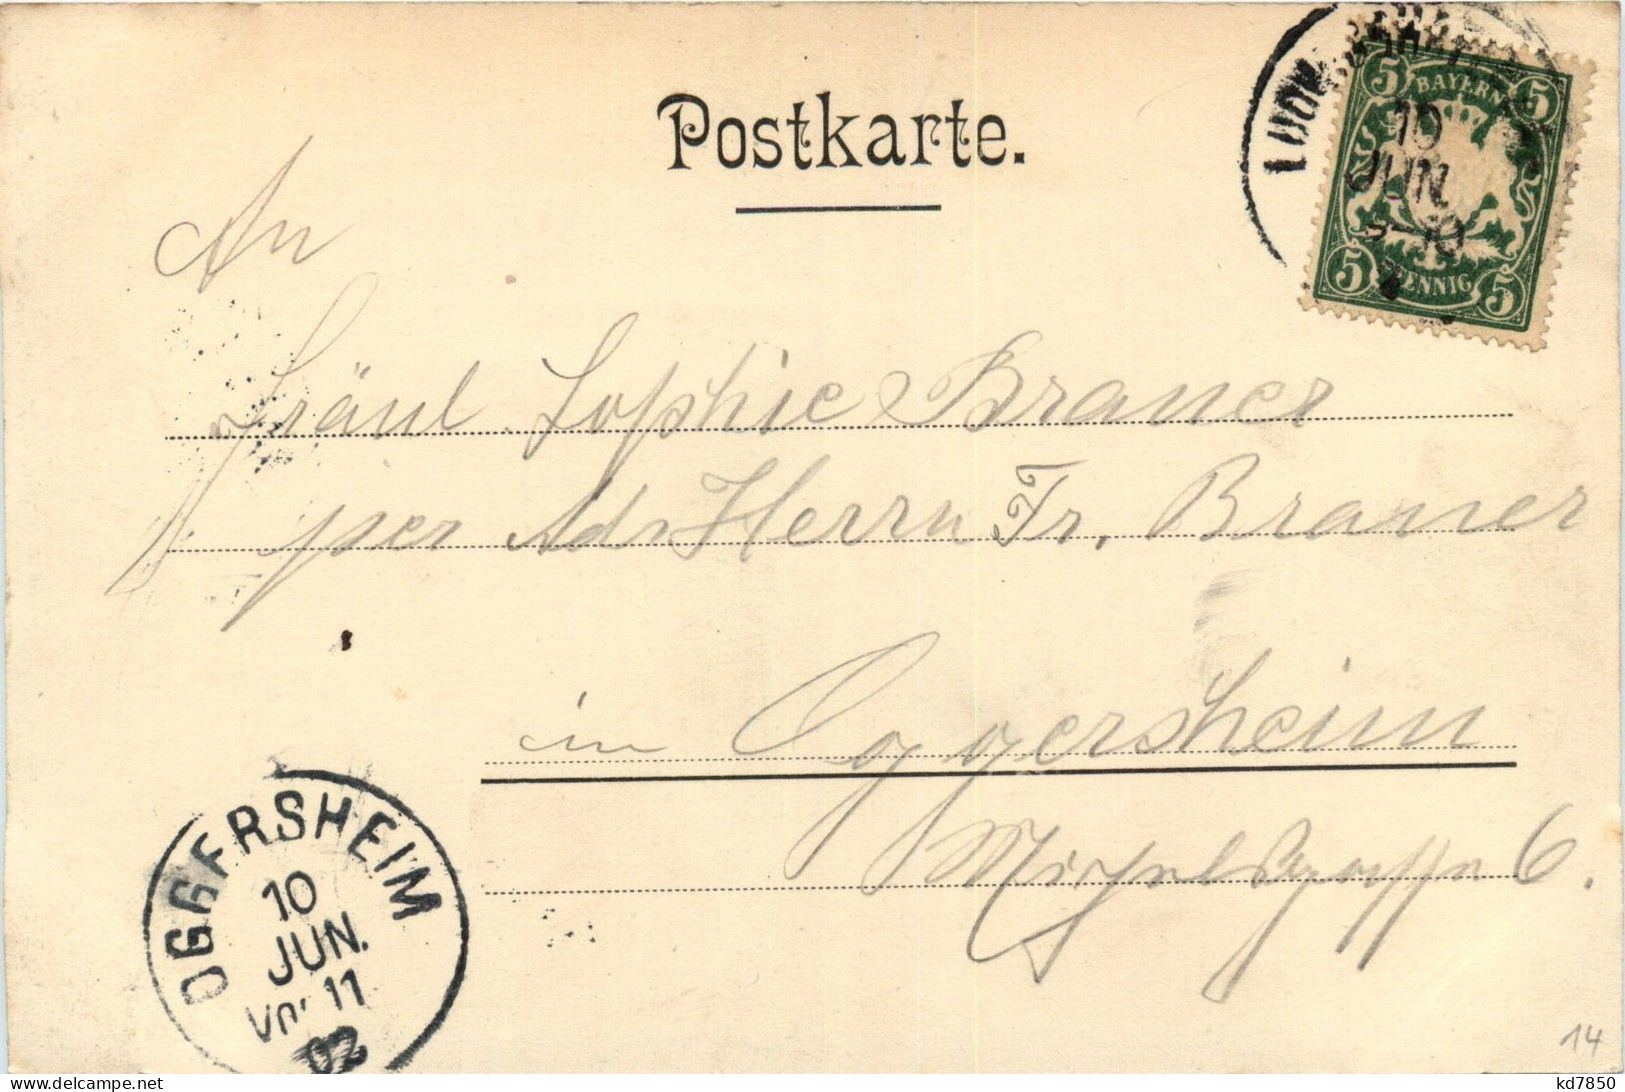 Postkarte.
5 BAYERN 5
10
JUN
5 PFENNIG 5
An
Fräul Sophie Brauer
per Adr Herrn Fr. Brauer
in Oggersheim
6.
OGGERSHEIM
10
JUN.
Vor 11
02
14
www.delcampe.net
kd7850